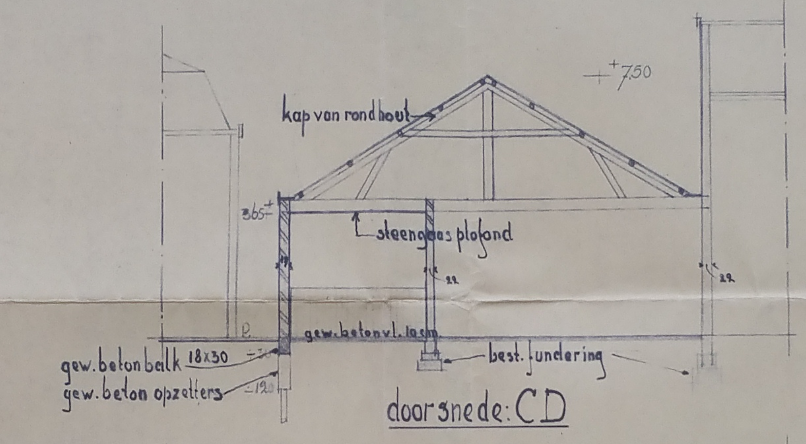 +7.50
kap van rondhout
365+
steengaas plafond
22
22
gew. betonvl. 10cm
gew. beton balk 18x30
best. fundering
gew. beton opzetters
-120
doorsnede: CD